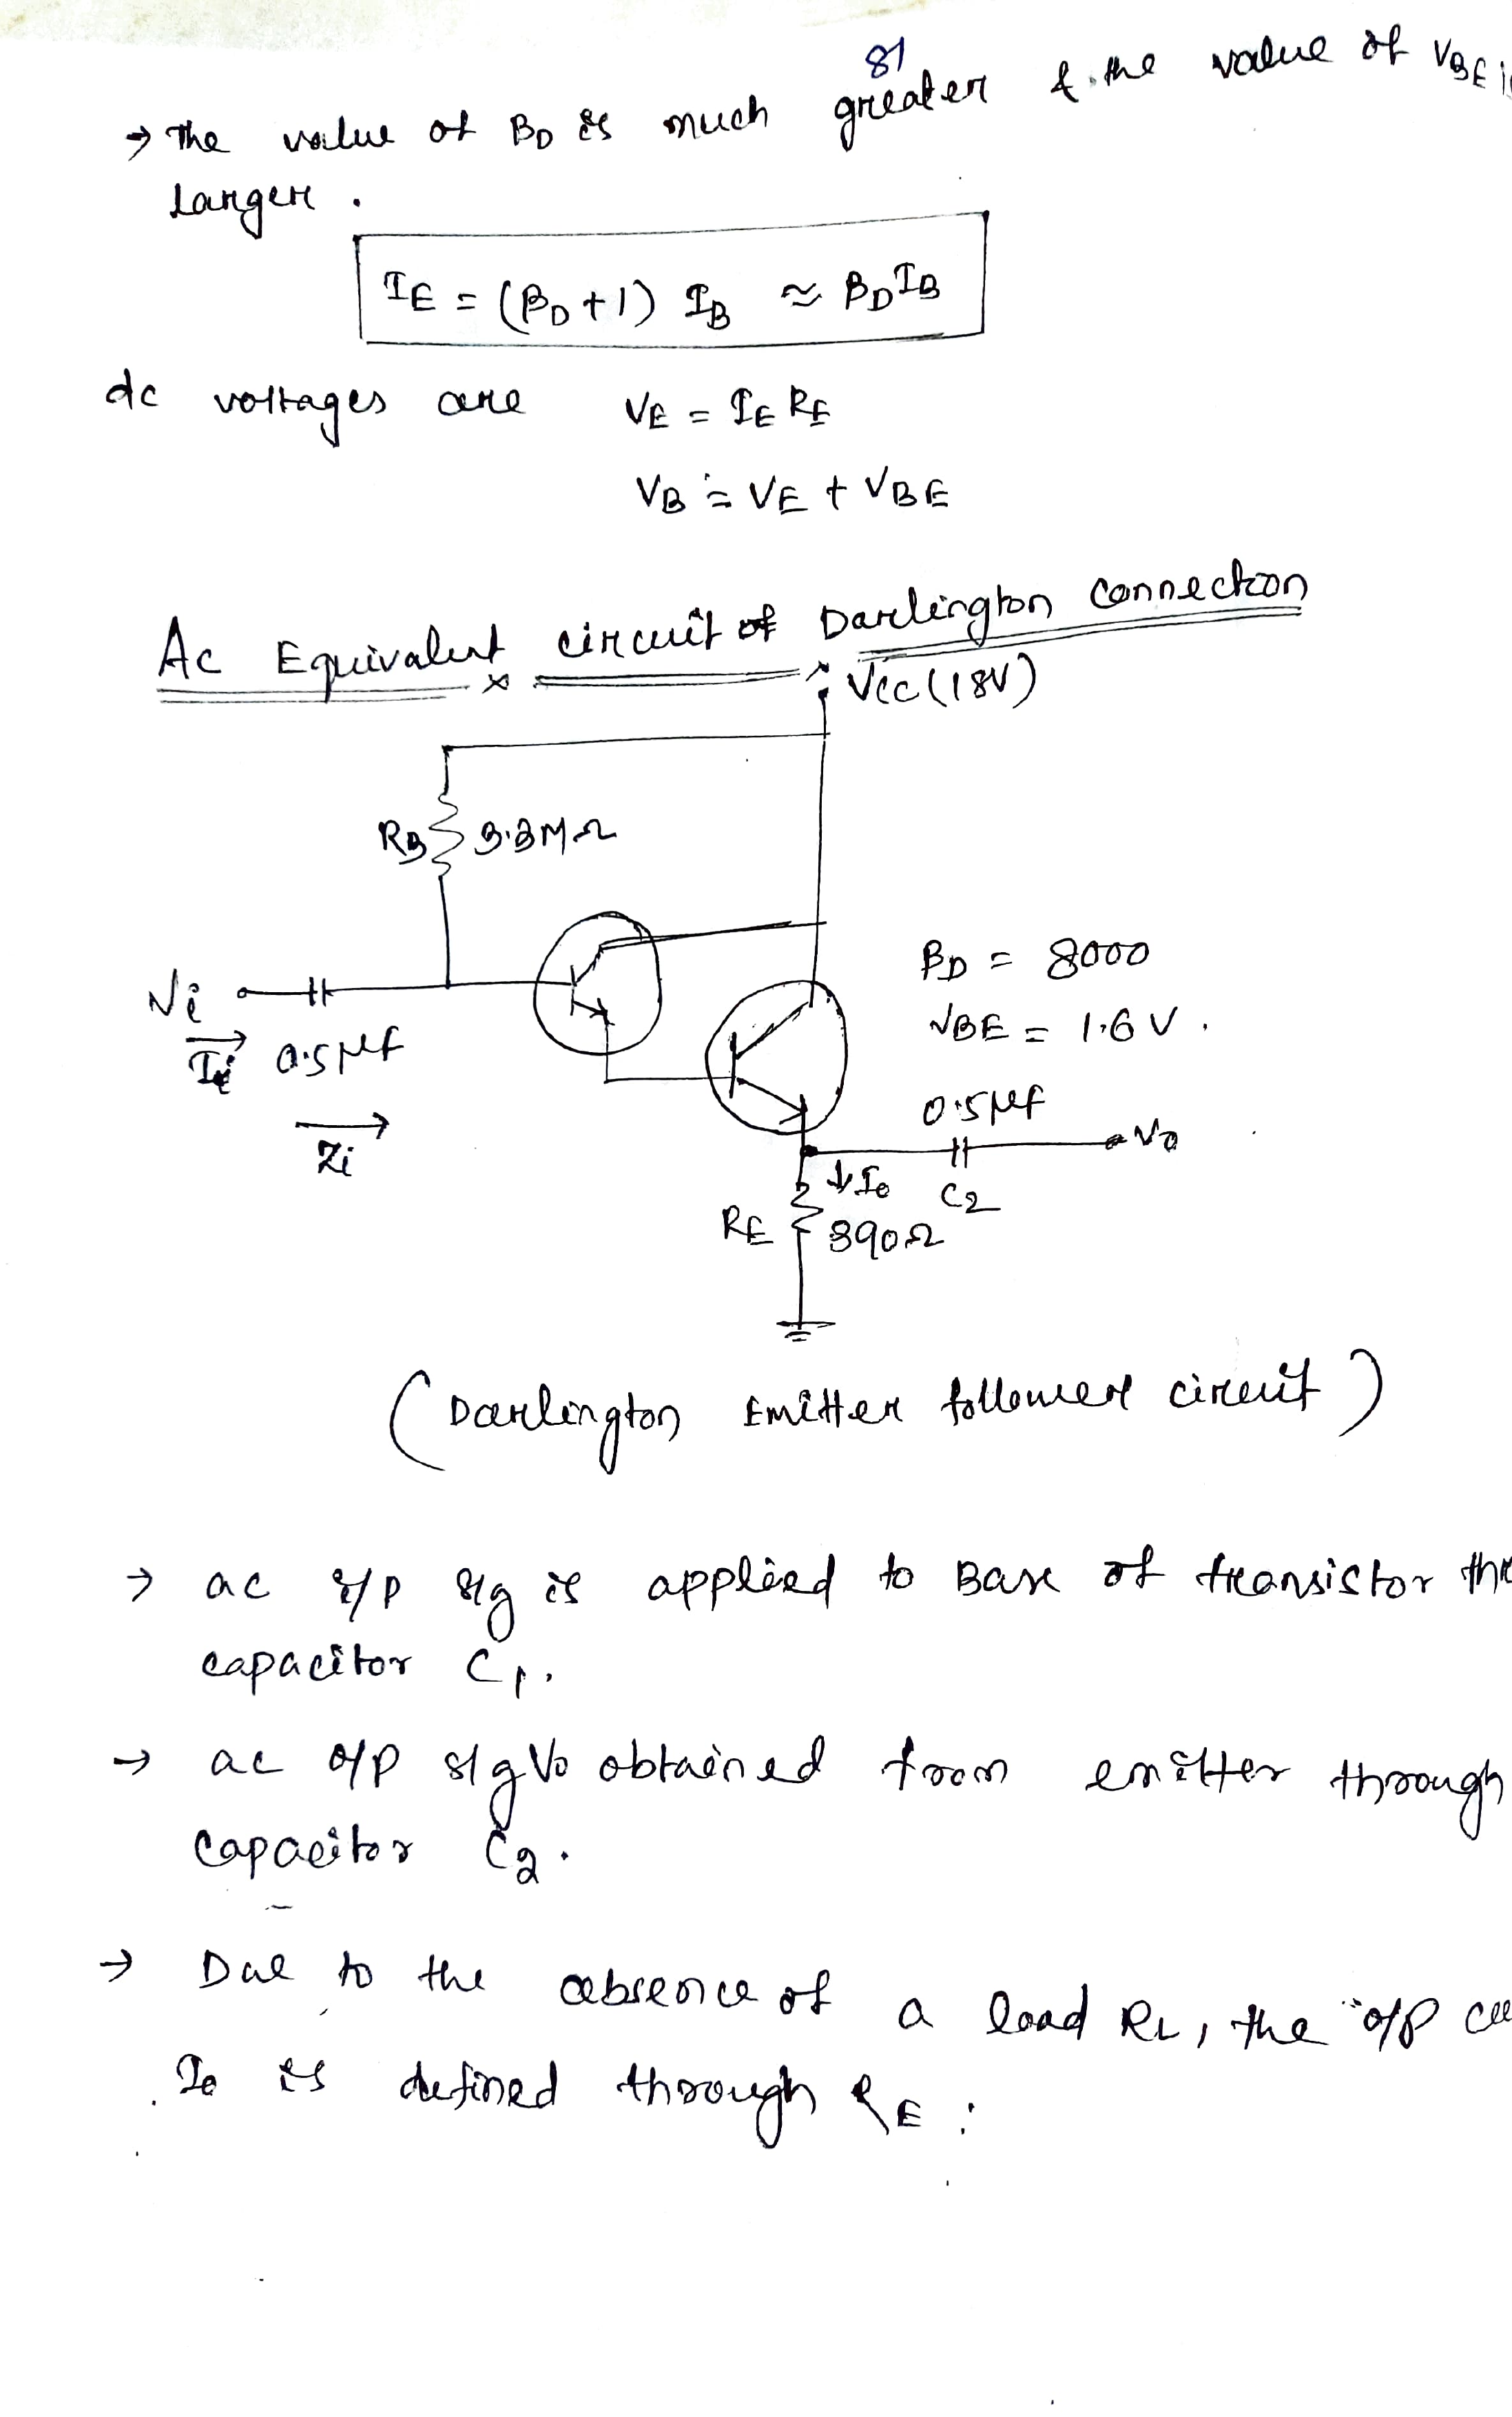 81
→ The value of βD is much greater & the value of VBE i
Larger.
IE = (βD+1) IB ≈ βDIB
dc voltages are VE = IE RE
VB = VE + VBE
Ac Equivalent circuit of Darlington Connection
Vcc (18V)
RB 3.3MΩ
βD = 8000
Vi
VBE = 1.6 V.
Ii 0.5µf
0.5µf
Vo
Zi
↓Io C2
RE 390Ω
(Darlington Emitter follower circuit)
→ ac i/p sig is applied to Base of transistor
capacitor C1.
→ ac o/p sig Vo obtained from emitter through
Capacitor C2.
→ Due to the absence of a load RL, the o/p
Io is defined through RE.